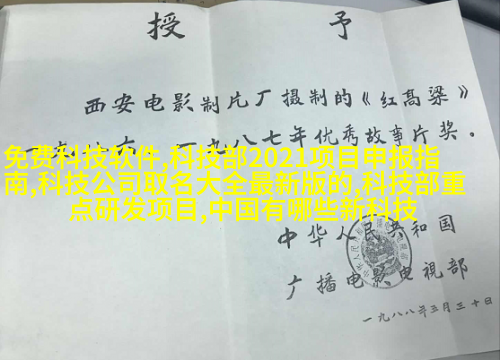 授 予
西安电影制片厂摄制的《红高粱》
一九八七年优秀故事片奖。
免费科技软件,科技部2021项目申报指
南,科技公司取名大全最新版的,科技部重
点研发项目,中国有哪些新科技
中华人民共和国
广播电影电视部
一九八八年三月三十日